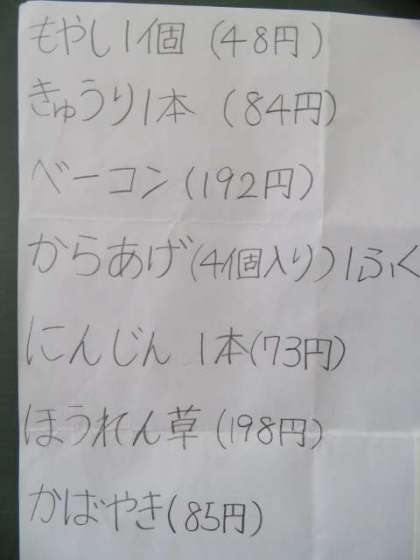 もやし1個 (48円)
きゅうり1本 (84円)
ベーコン(192円)
からあげ(4個入り)1ふく
にんじん 1本(73円)
ほうれん草(198円)
かばやき(85円)